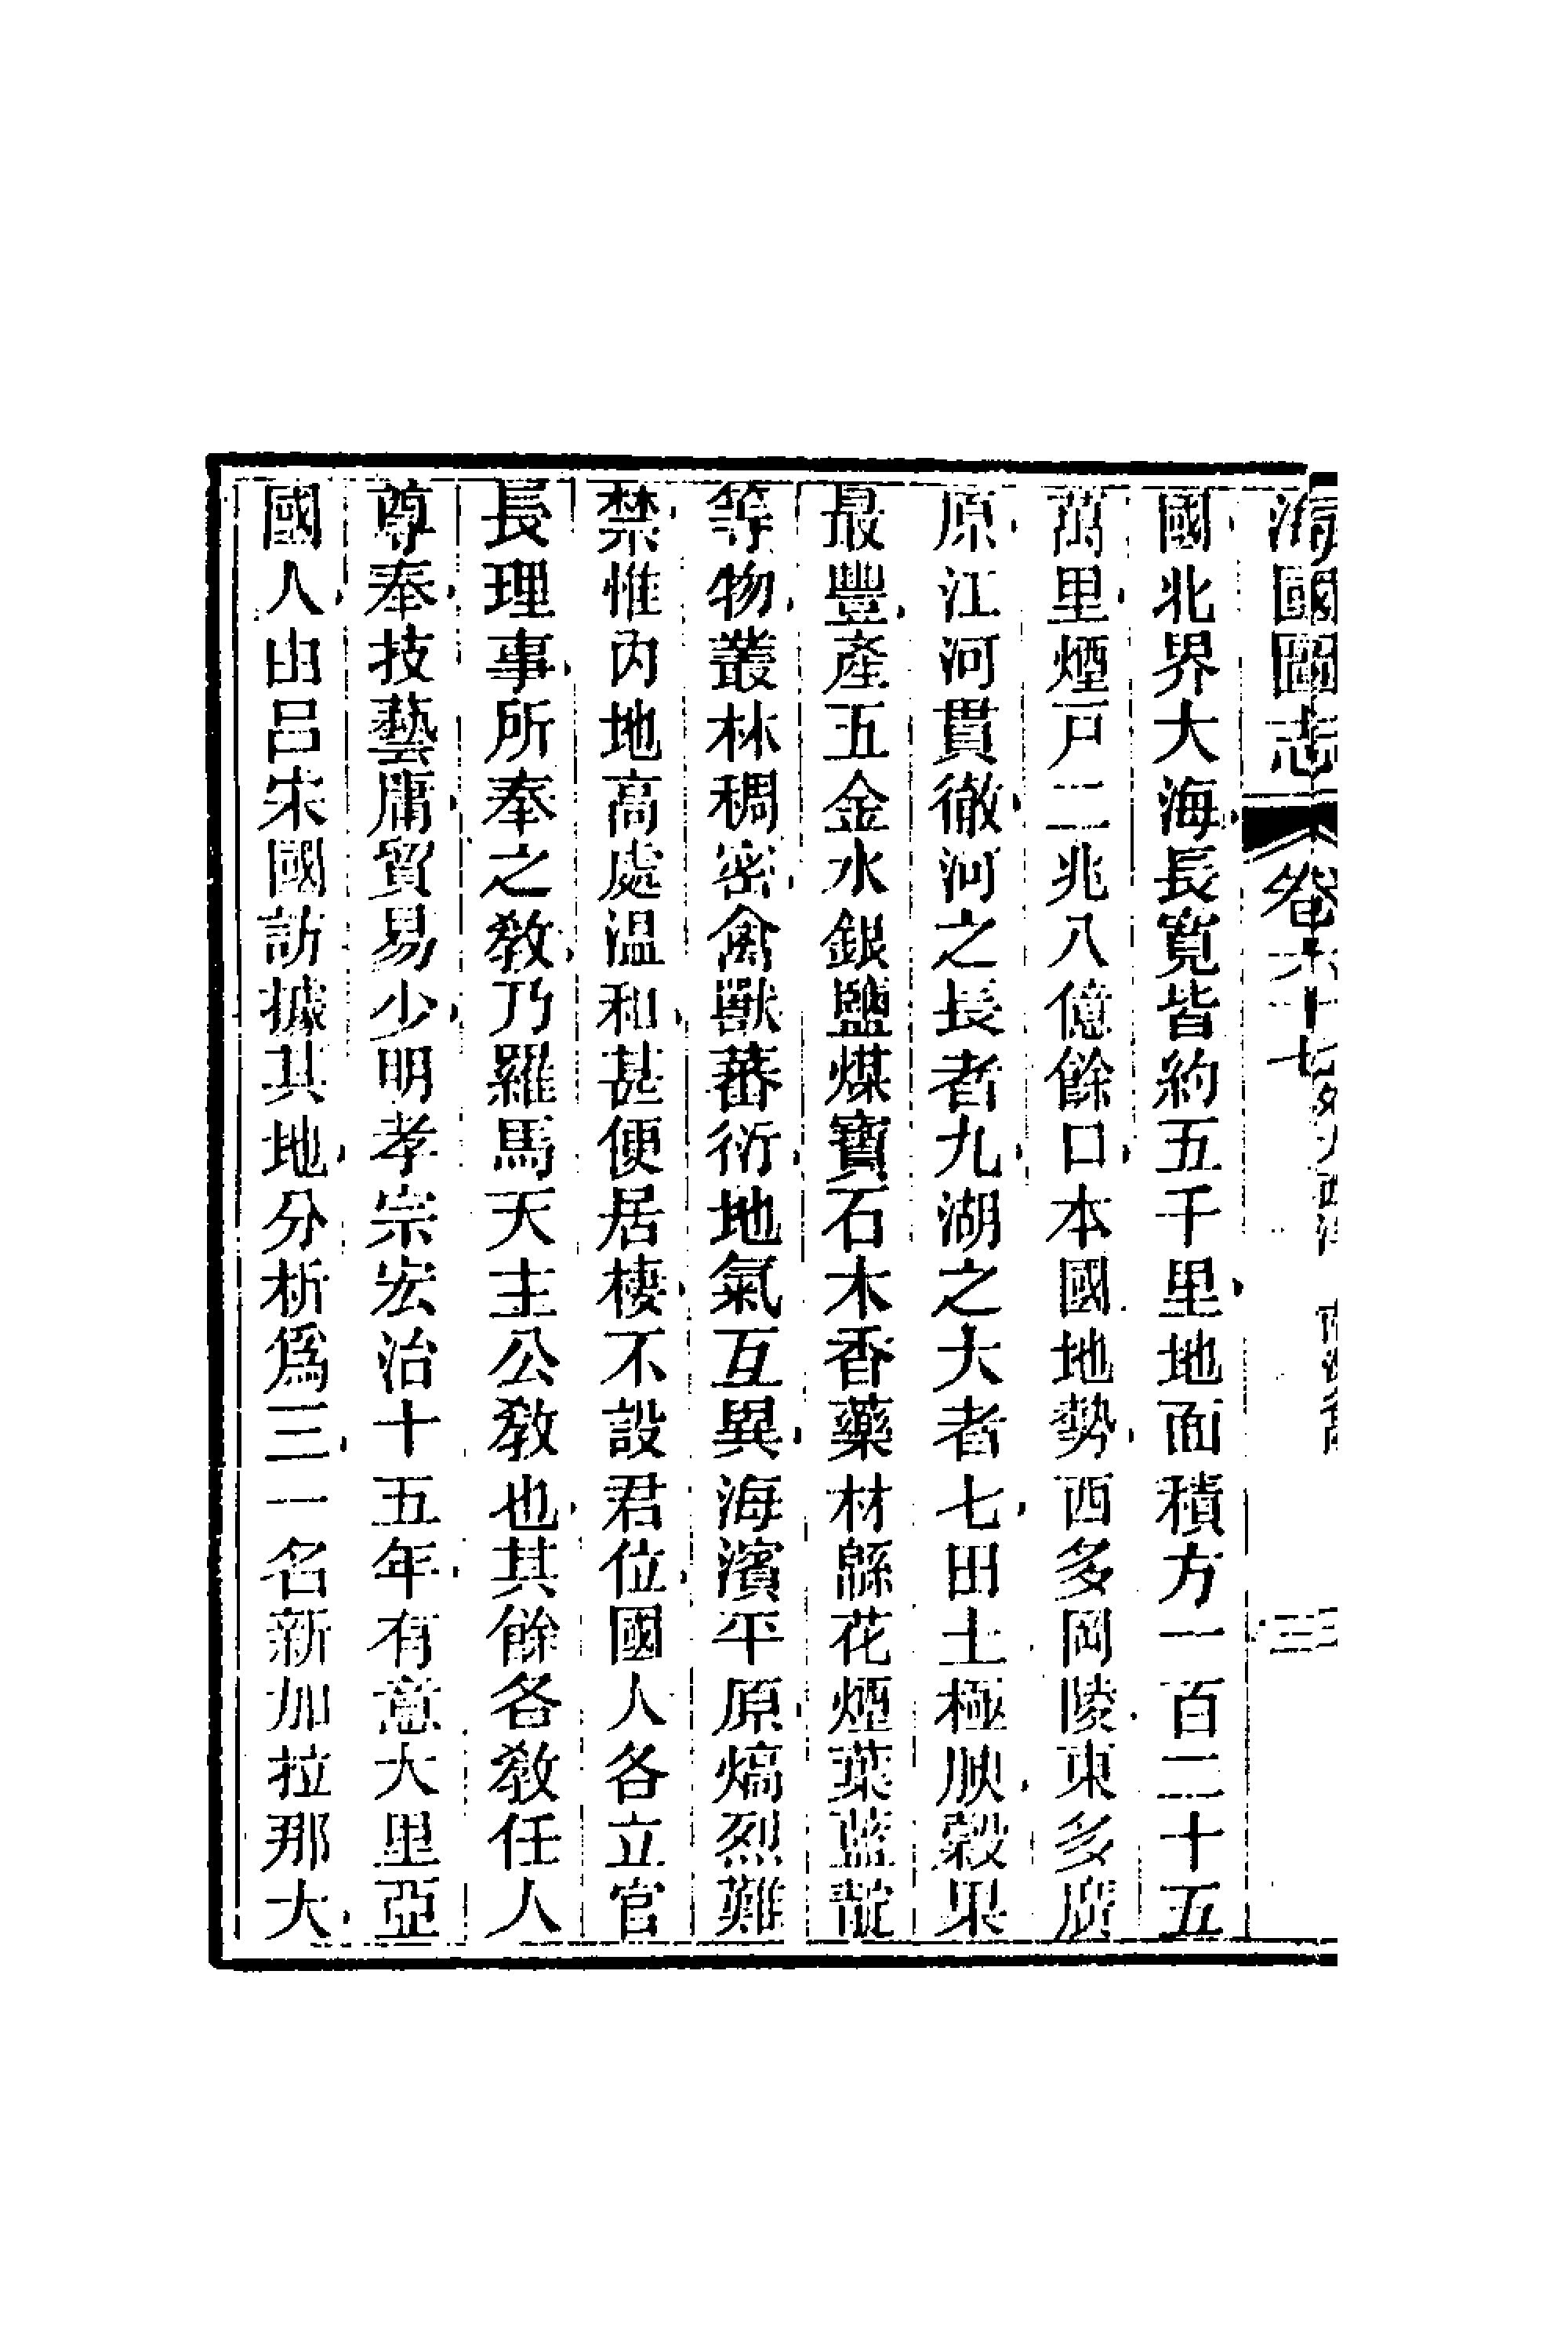 海國圖志 卷六十七 外大西洋 三
國北界大海長寬皆約五千里地面積方一百二十五
萬里煙戸二兆八億餘口本國地勢西多岡陵東多廣
原江河貫徹河之長者九湖之大者七田土極腴穀果
最豐產五金水銀鹽煤寶石木香藥材緜花煙葉藍靛
等物叢林稠密禽獸蕃衍地氣互異海濱平原熇烈難
禁惟內地高處温和甚便居棲不設君位國人各立官
長理事所奉之敎乃羅馬天主公敎也其餘各敎任人
尊奉技藝庸貿易少明孝宗宏治十五年有意大里亞
國人由呂宋國訪據其地分析爲三一名新加拉那大